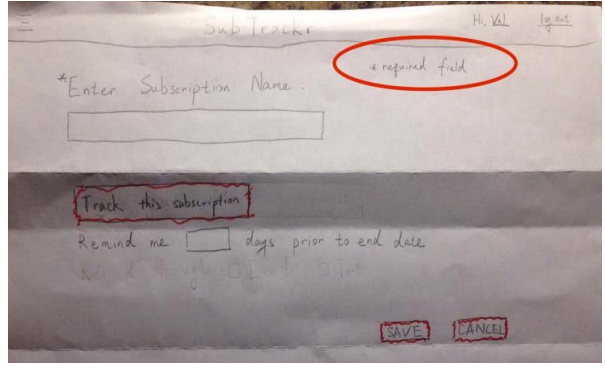 SubTrackr Hi, Val log out
* required field
*Enter Subscription Name:
Track this subscription
Remind me days prior to end date
SAVE CANCEL